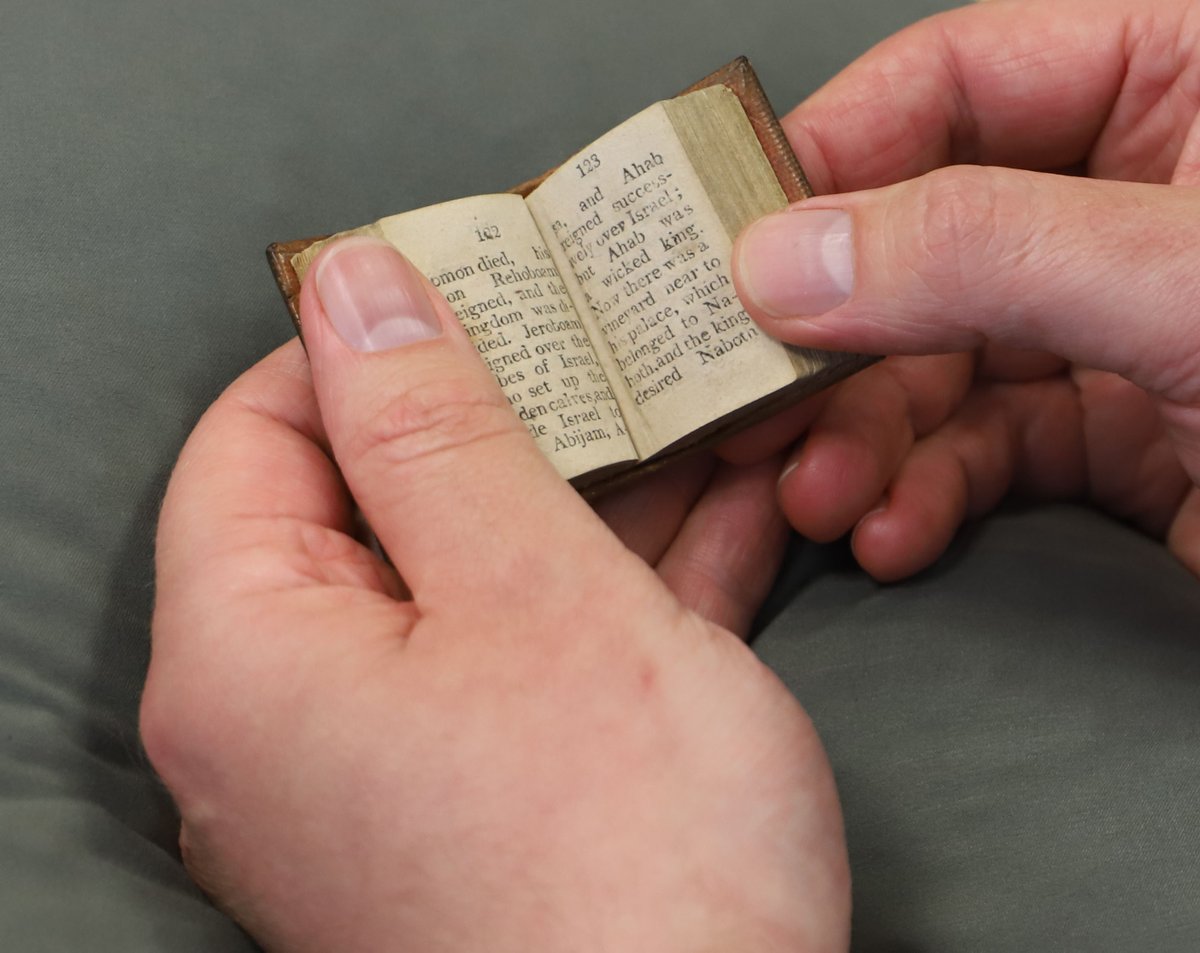 122
omon died, his
on Rehoboam
eigned, and the
ingdom was di-
ded. Jeroboam
igned over the
bes of Israel,
ho set up the
den calves, and
de Israel to
Abijam, A-
123
sa, and Ahab
reigned success-
ively over Israel;
but Ahab was
wicked king.
Now there was a
vineyard near to
his palace, which
belonged to Na-
both, and the king
desired Naboth